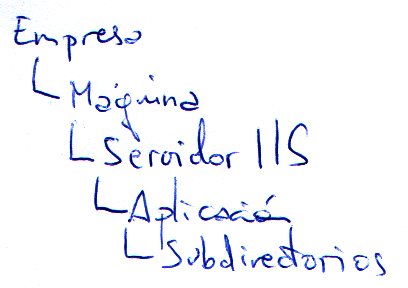 Empresa
Máquina
Servidor IIS
Aplicación
Subdirectorios